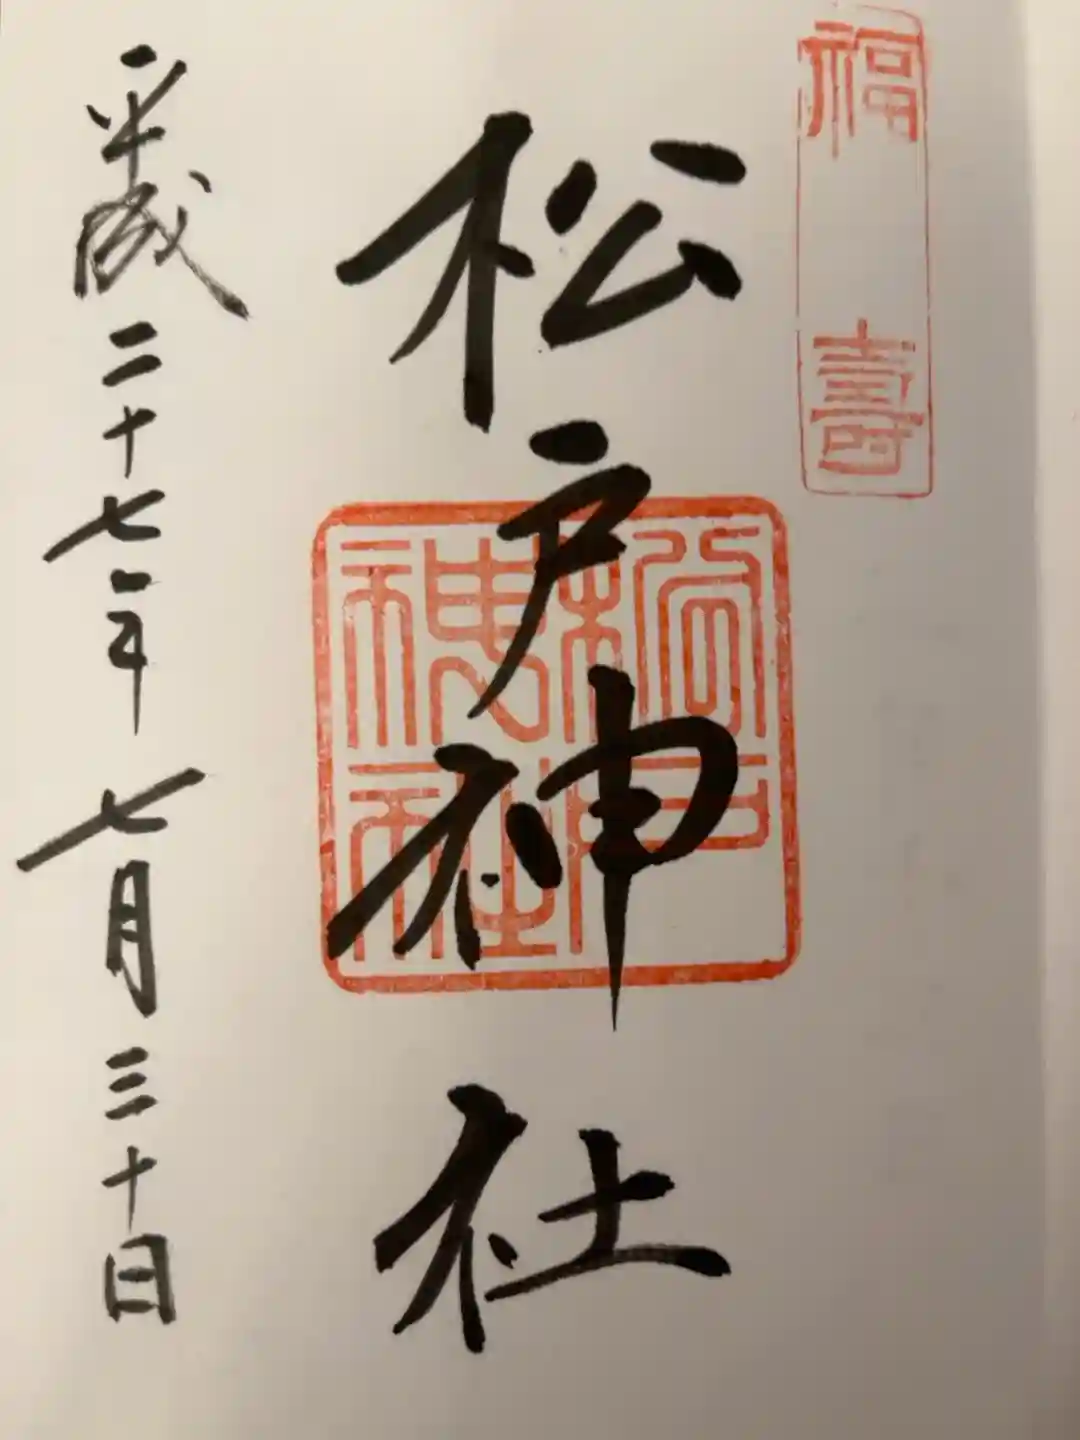 福壽
松戸神社
松戸神社
平成二十七年七月三十日